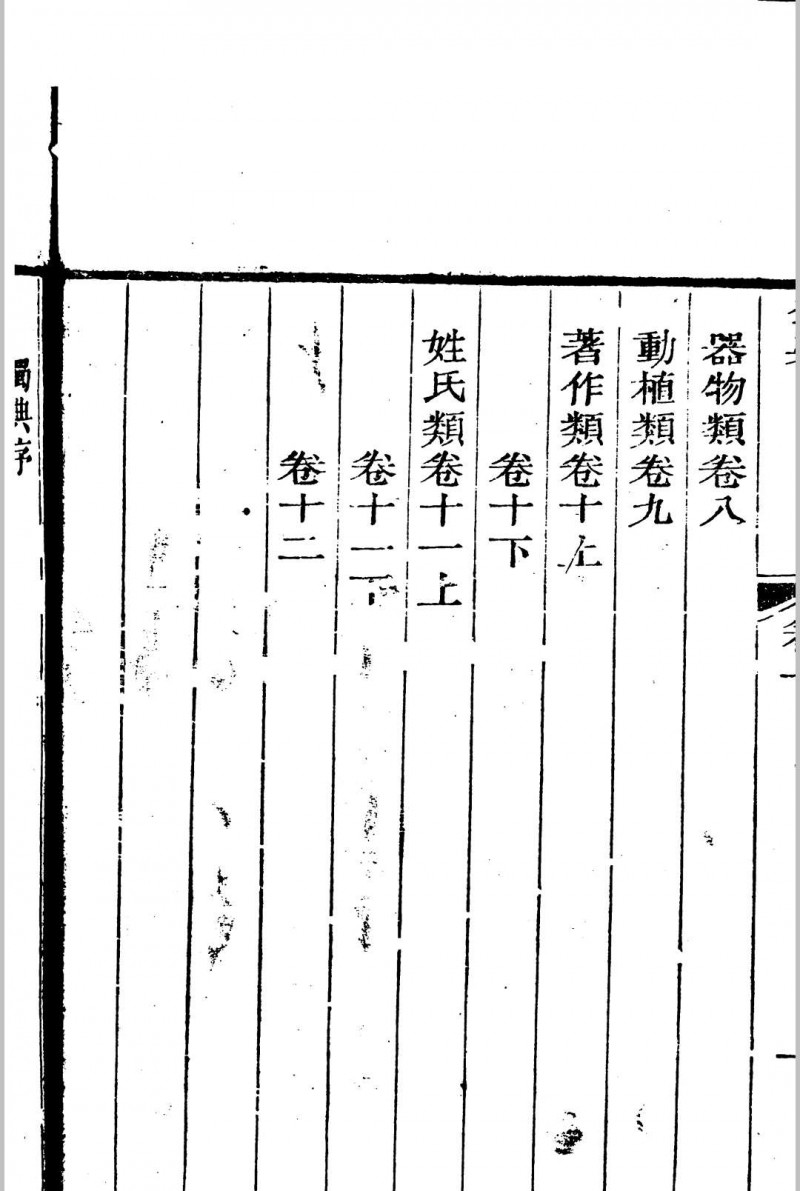 器物類卷八
動植類卷九
著作類卷十上
卷十下
姓氏類卷十一上
卷十一下
卷十二
典序